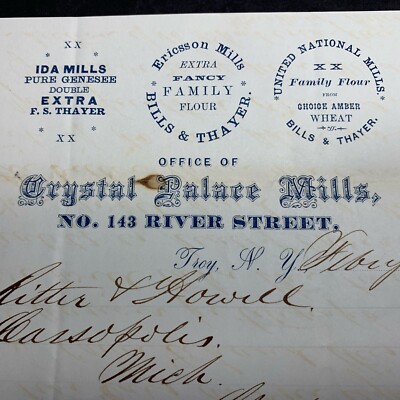 XX
IDA MILLS
PURE GENESEE
DOUBLE
EXTRA
F. S. THAYER
XX
Ericsson Mills
EXTRA
FANCY
FAMILY
FLOUR
BILLS & THAYER.
UNITED NATIONAL MILLS.
XX
Family Flour
FROM
CHOICE AMBER
WHEAT
BILLS & THAYER.
OFFICE OF
Crystal Palace Mills,
NO. 143 RIVER STREET.
Troy, N. Y. Feby
Ritter & Howell
Cassopolis.
Mich.